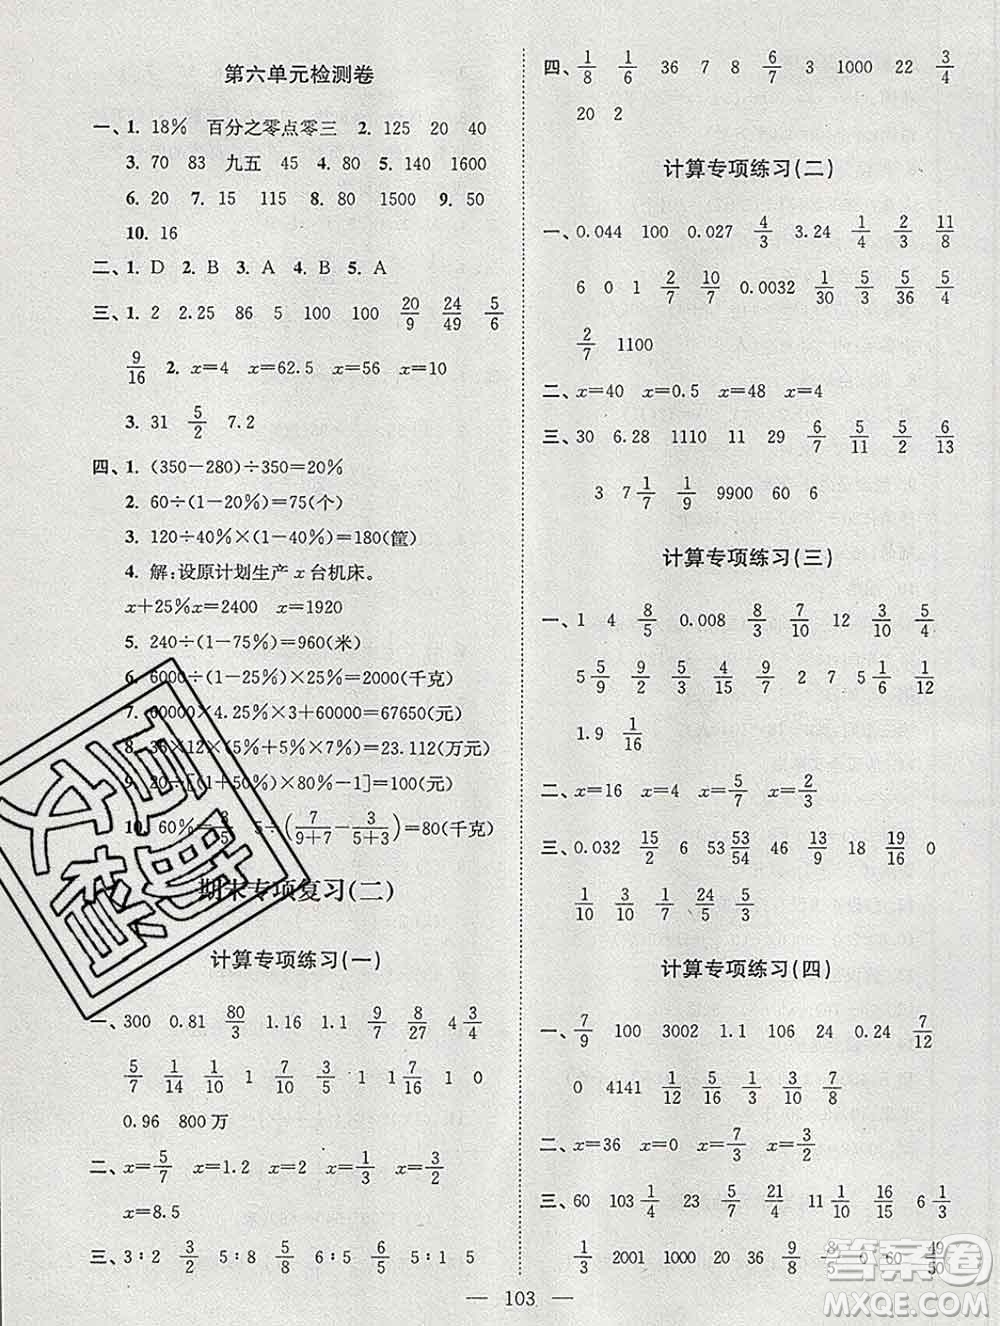 第六单元检测卷
一、1. 18% 百分之零点零三 2. 125 20 40
3. 70 83 九五 45 4. 80 5. 140 1600
6. 20 7. 15 115 8. 80 1500 9. 50
10. 16
二、1. D 2. B 3. A 4. B 5. A
三、1. 2 2.25 86 5 100 100 20/9 24/49 5/6
9/16 2. x=4 x=62.5 x=56 x=10
3. 31 5/2 7.2
四、1. (350-280)÷350=20%
2. 60÷(1-20%)=75(个)
3. 120÷40%×(1-40%)=180(筐)
4. 解:设原计划生产 x 台机床。
x+25%x=2400 x=1920
5. 240÷(1-75%)=960(米)
6. 6000÷(1-25%)×25%=2000(千克)
7. 60000×4.25%×3+60000=67650(元)
8. 36×12×(5%+20%×7%)=23.112(万元)
9. 20÷[(1+50%)×80%-1]=100(元)
10. 60%=3/5 5÷(7/(9+7)-3/(5+3))=80(千克)
期末专项复习(二)
计算专项练习(一)
一、300 0.81 80/3 1.16 1.1 9/7 8/27 4 3/4
5/7 1/14 1/10 1 7/10 3/5 1 7/16 1 0
0.96 800万
二、x=5/7 x=1.2 x=2 x=1/3 x=3/2
x=8.5
三、3∶2 3/2 5∶8 5/8 6∶5 6/5 5∶1 5
四、1/8 1/6 36 7 8 6/7 3 1000 22 3/4
20 2
计算专项练习(二)
一、0.044 100 0.027 4/3 3.24 1/4 2/3 11/8
6 0 1 2/7 10/7 0.0032 1/30 5/36 5/4
2/7 1100
二、x=40 x=0.5 x=48 x=4
三、30 6.28 1110 11 29 6/7 5/11 6/13
3 7 1/7 1/9 9900 60 6
计算专项练习(三)
一、1 4 8/5 0.008 8/3 7/10 12 3/10 5/4
5 5/9 9/5 4/15 7/10 1/5 1/11
1.9 1/16
二、x=16 x=4 x=5/7 x=2/3
三、0.032 15/2 7 53 53/54 15 8/9 18/19 0
1/10 3/10 1/7 24/5 5/9 5/9
计算专项练习(四)
一、7/9 100 3002 1.1 106 24 0.24 7/12
0 4141 1/2 1/10 3/2 7/8
二、x=36 x=0 x=7/3 x=3/2
三、60 103 1/4 23 5/7 21/4 11 1/10 16/15 6 1/3
1/3 2001 1000 20 36 9/8 0 60 49/50
— 103 —
答案圈
MXQE.COM